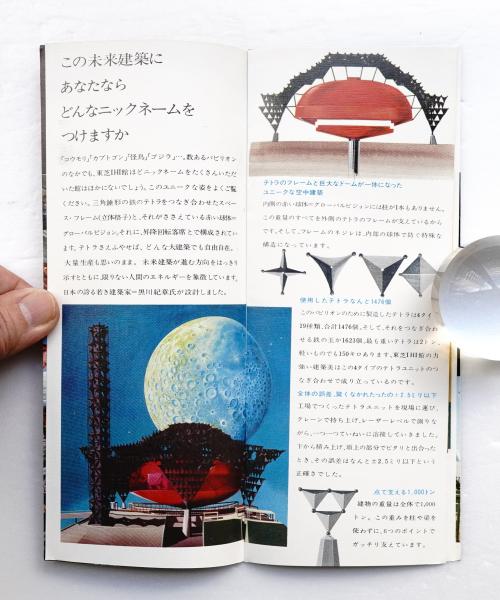 この未来建築に
あなたなら
どんなニックネームを
つけますか
『コウモリ』『カブトゴン』『怪鳥』『ゴジラ』…。数あるパビリオン
のなかでも、東芝IHI館ほどニックネームをたくさんいただ
いた館はほかにないでしょう。このユニークな姿をよくご覧
ください。三角錐形の鉄のテトラをつなぎ合わせたスペー
ス・フレーム(立体格子)と、それがささえている赤い球体=
グローバルビジョン。それに、昇降回転客席とで構成されてい
ます。テトラさえふやせば、どんな大建築でも自由自在。
大量生産も思いのまま。未来建築が進む方向をはっきり
示すとともに、限りない人間のエネルギーを象徴しています。
日本の誇る若き建築家=黒川紀章氏が設計しました。
テトラのフレームと巨大なドームが一体になった
ユニークな空中建築
内側の赤い球体=グローバルビジョンには柱が1本もありません。
この重量のすべてを外側のテトラのフレームが支えているから
です。そして、フレームのネジレは、内部の球体で防ぐ特殊な
構造になっています。
使用したテトラなんと1476個
このパビリオンのために製造したテトラは4タイプ
19種類、合計1476個。そして、それをつなぎ合わ
せる鉄の玉が1623個。最も重いテトラは2トン、
軽いものでも150キロあります。東芝IHI館の力
強い建築美はこの4タイプのテトラユニットのつ
なぎ合わせで成り立っているのです。
全体の誤差、驚くなかれたったの±2.5ミリ以下
工場でつくったテトラユニットを現場に運び、
クレーンで持ち上げ、レーザーレベルで測りな
がら、一つ一つていねいに溶接していきました。
下から積み上げ、頂上の部分でピタリと出合った
とき、その誤差はなんと±2.5ミリ以下という
正確さでした。
点で支える1,000トン
建物の重量は全体で1,000
トン。この重みを柱や梁を
使わずに、6つのポイントで
ガッチリ支えています。